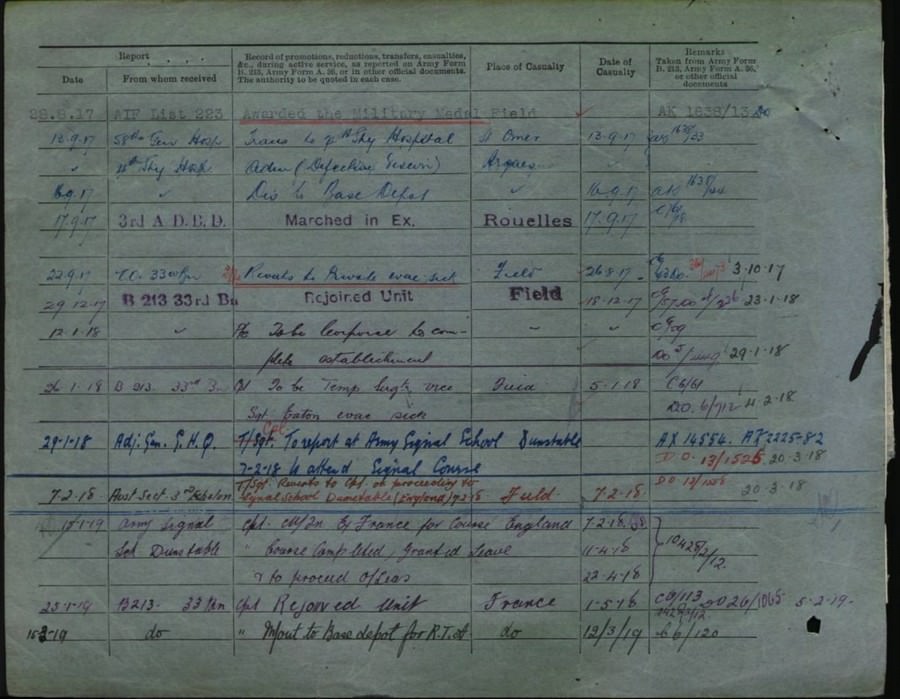 Report
Date
From whom received
Record of promotions, reductions, transfers, casualties,
&c., during active service, as reported on Army Form
B. 213, Army Form A. 36, or in other official documents.
The authority to be quoted in each case.
Place of Casualty
Date of
Casualty
Remarks
Taken from Army Form
B. 213, Army Form A. 36,
or other official
documents
28.8.17 AIF List 223 Awarded the Military Medal Field AK 1638/13
13.9.17 58th Gen Hosp Trans to Hospital St Omer 13-9-17
" 4th Hosp (Defective Arques "
" Dis to Base Depot " 16.9.17
17.9.17 3rd A.D.B.D. Marched in Ex. Rouelles 17.9.17
22.9.17 Reverts to Private evac sick Field 26.8.17 3-10-17
29-12-17 B 213 33rd Bn Rejoined Unit Field 18-12-17 23-1-18
12-1-18 " To be Corporal to com-
plete establishment 29-1-18
26-1-18 B 213 33rd Bn Cpl To be Temp Sergt vice Field 5-1-18 C6/61
Sgt Eaton evac sick D.O. 6/712 4-2-18
Cpl
29-1-18 Adj. Gen. G.H.Q. T/Sgt. To report at Army Signal School Dunstable AX 14554.
7-2-18 to attend Signal Course D.O. 13/1526 20-3-18
7-2-18 Aust Sect 3rd Echelon T/Sgt. Reverts to Cpl. on proceeding to
Signal School Dunstable (England) 7-2-18 Field 7-2-18 20-3-18
Army Signal Cpl. France for Course England 7-2-18
Scl Dunstable " Course Completed, Granted Leave 11-4-18
& to proceed O/Seas 22-4-18
B213 33 Bn Cpl Rejoined Unit France 1-5-18 5-2-19
do " M/out to Base depot for R.T.A do 12/3/19